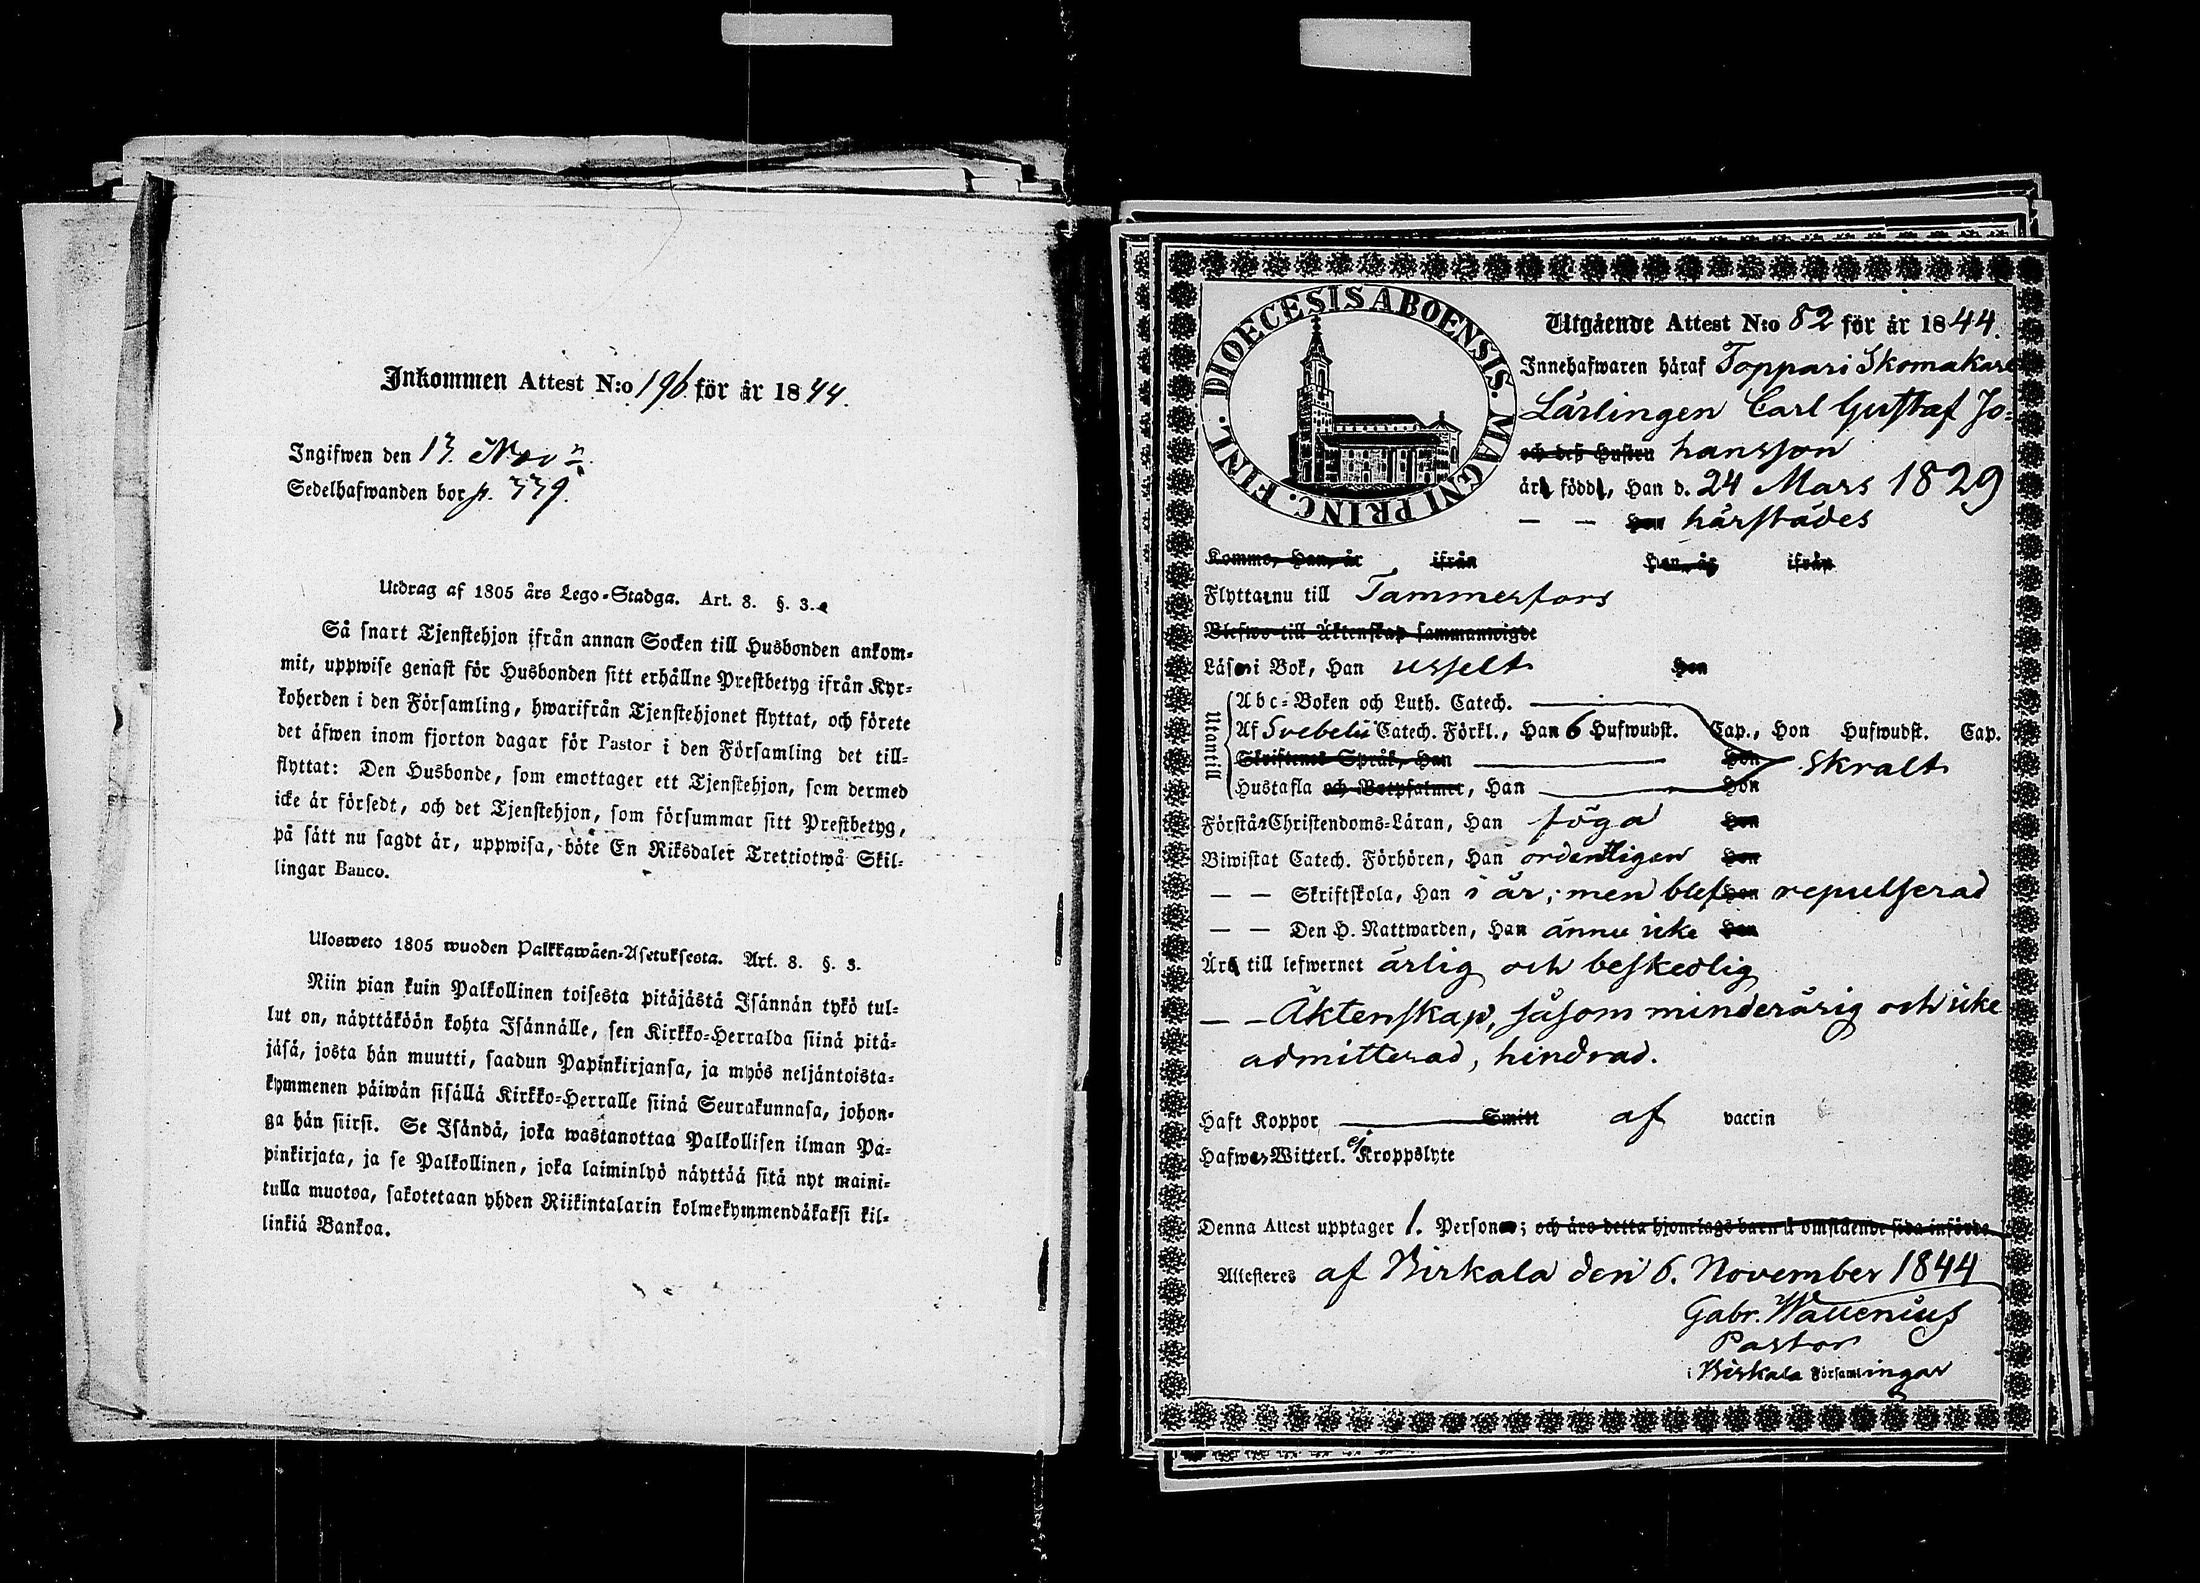 Inkommen Attest N:o 196 för år 1844.
Ingifwen den 13 Nov
Sedelhafwanden bor p. 339.
Utdrag af 1805 års Lego-Stadga. Art. 8. §. 3.
Så snart Tjenstehjon ifrån annan Socken till Husbonden ankom-
mit, uppwise genast för Husbonden sitt erhållne Prestbetyg ifrån Kyr-
koherden i den Församling, hwarifrån Tjenstehjonet flyttat, och förete
det äfwen inom fjorton dagar för Pastor i den Församling det till-
flyttat: Den Husbonde, som emottager ett Tjenstehjon, som dermed
icke är försedt, och det Tjenstehjon, som försummar sitt Prestbetyg,
på sätt nu sagdt är, uppwisa, böte En Riksdaler Trettiotwå Skil-
lingar Banco.
Ulosweto 1805 wuoden Palkkawäen-Asetuksesta. Art. 8. §. 3.
Niin pian kuin Palkollinen toisesta pitäjästä Isännän tykö tul-
lut on, näyttäköön kohta Isännälle, sen Kirkko-Herralda siinä pitä-
jäsä, josta hän muutti, saadun Papinkirjansa, ja myös neljäntoista-
kymmenen päiwän sisällä Kirkko-Herralle siinä Seurakunnasa, johon-
ga hän siirsi. Se Isändä, joka wastanottaa Palkollisen ilman Pa-
pinkirjata, ja se Palkollinen, joka laiminlyö näyttää sitä nyt maini-
tulla muotoa, sakotetaan yhden Riikintalarin kolmekymmendäkaksi kil-
linkiä Bankoa.
DIOECESIS ABOENSIS. MAGNI PRINC. FINL.
Utgående Attest N:o 82 för år 1844.
Innehafwaren häraf Toppari Skomakare
Lärlingen Carl Gustaf Jo-
och deß Hustru hansson
är född, Han d. 24 Mars 1829
— — Hon härstädes
Kommo, Han, år ifrån Hon, år ifrån
Flytta nu till Tammerfors
Blefwo till Äktenskap sammanwigde
Läser i Bok, Han usselt Hon
Utantill
Abc-Boken och Luth. Catech.
Af Svebelii Catech. Förkl., Han 6 Hufwudst. Cap., Hon Hufwudst. Cap.
Skriftenes Språk, Han Hon skralt
Hustafla och Botpsalmer, Han Hon
Förstår Christendoms-Läran, Han föga Hon
Biwistat Catech. Förhören, Han ordentligen Hon
— — Skriftskola, Han i år; men blef Hon repulserad
— — Den H. Nattwarden, Han ännu icke Hon
Är till lefwernet ärlig och beskedlig
— — Äktenskap, såsom minderårig och icke
admitterad, hindrad.
Haft Koppor Smitt af vaccin
Hafwer Witterl. ej Kroppslyte
Denna Attest upptager 1. Person; och äro detta hjonelags barn å omstående sida införde.
Attesteres af Birkala den 6. November 1844
Gabr. Wallenius
Pastor
i Birkala Församlingar